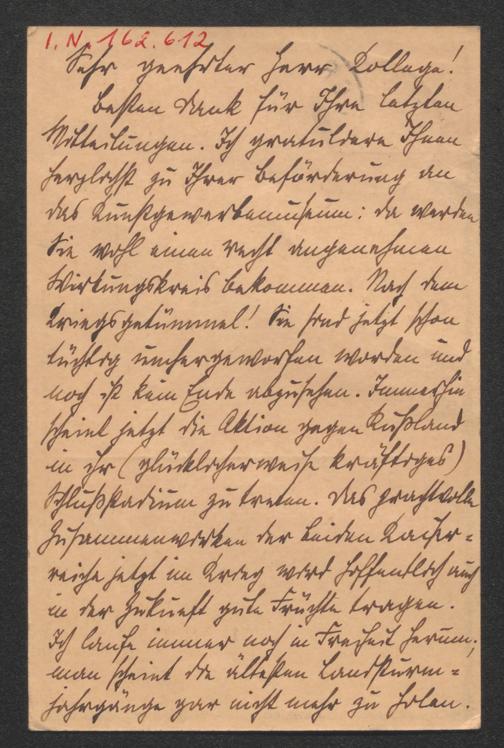 I.N. 162.612
Sehr geehrter Herr Kollege!
Besten Dank für Ihre letzten
Mitteilungen. Ich gratuliere Ihnen
herzlichst zu Ihrer Beförderung an
das Kunstgewerbemuseum: da werden
Sie wohl einen recht angenehmen
Wirkungskreis bekommen. Nach dem
Kriegsgetümmel! Sie sind jetzt schon
tüchtig umhergeworfen worden und
noch ist kein Ende abzusehen. Immerhin
scheint jetzt die Aktion gegen Rußland
in ihr (glücklicherweise kräftiges)
Schlußstadium zu treten. Das prachtvolle
Zusammenwirken der beiden Kaiser-
reiche jetzt im Krieg wird hoffentlich auch
in der Zukunft gute Früchte tragen.
Ich laufe immer noch in Freiheit herum;
man scheint die ältesten Landsturm-
jahrgänge gar nicht mehr zu holen.